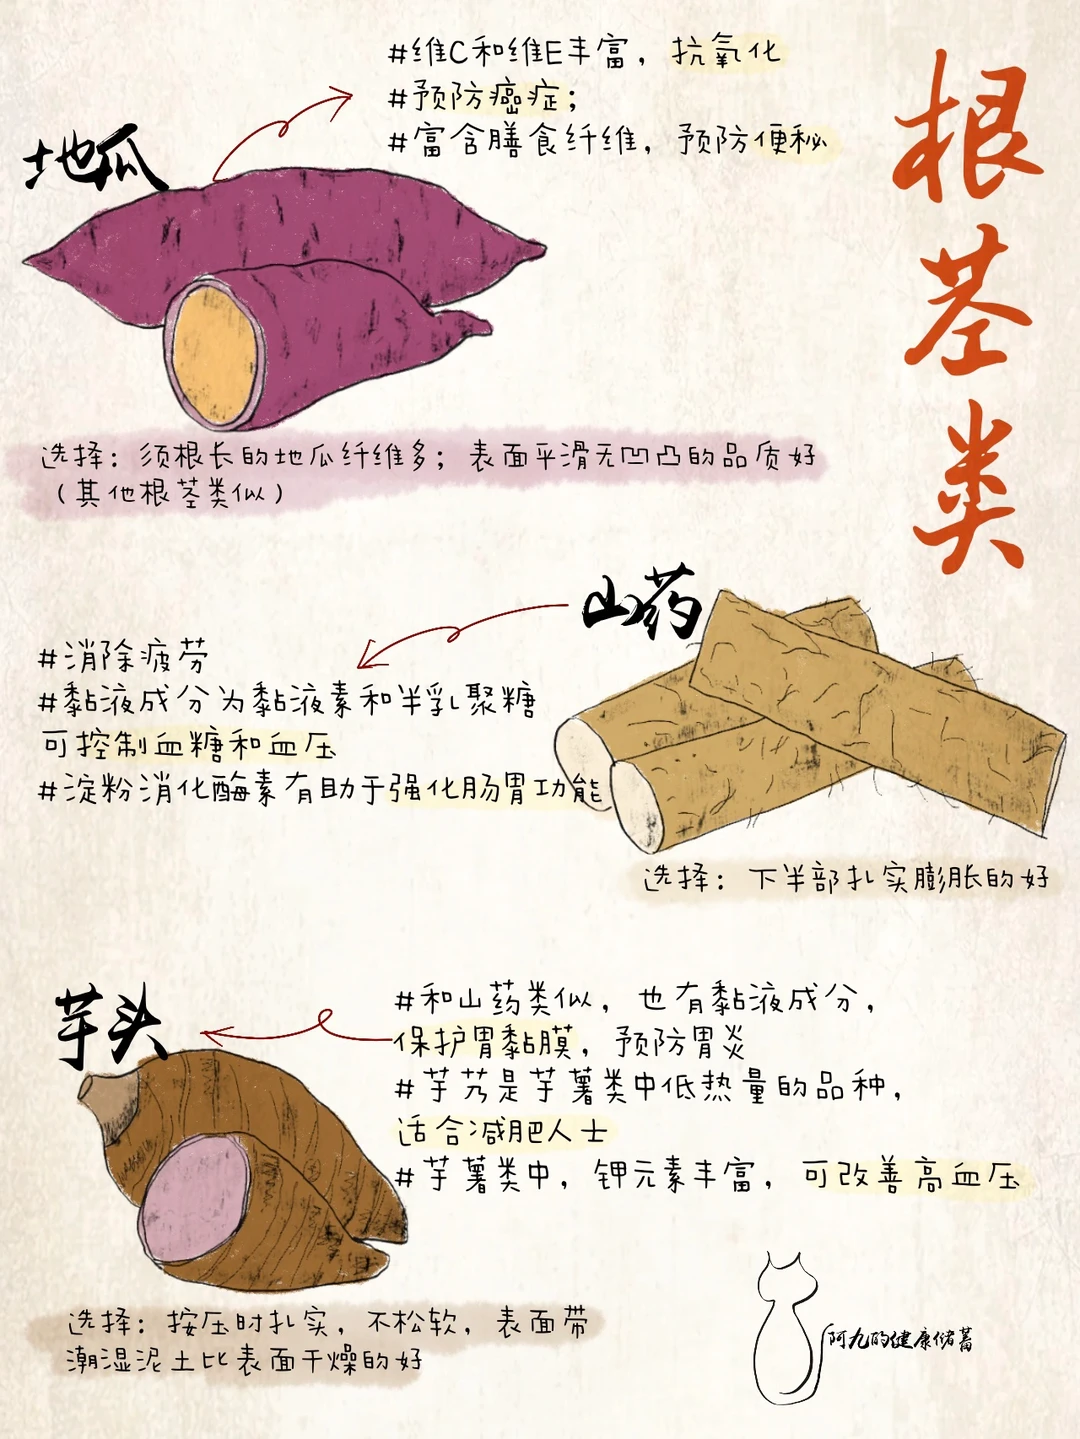 根茎类
地瓜
#维C和维E丰富，抗氧化
#预防癌症；
#富含膳食纤维，预防便秘
选择：须根长的地瓜纤维多；表面平滑无凹凸的品质好
（其他根茎类似）
山药
#消除疲劳
#黏液成分为黏液素和半乳聚糖
可控制血糖和血压
#淀粉消化酶素有助于强化肠胃功能
选择：下半部扎实膨胀的好
芋头
#和山药类似，也有黏液成分，
保护胃黏膜，预防胃炎
#芋艿是芋薯类中低热量的品种，
适合减肥人士
#芋薯类中，钾元素丰富，可改善高血压
选择：按压时扎实，不松软，表面带
潮湿泥土比表面干燥的好
阿九的健康储蓄